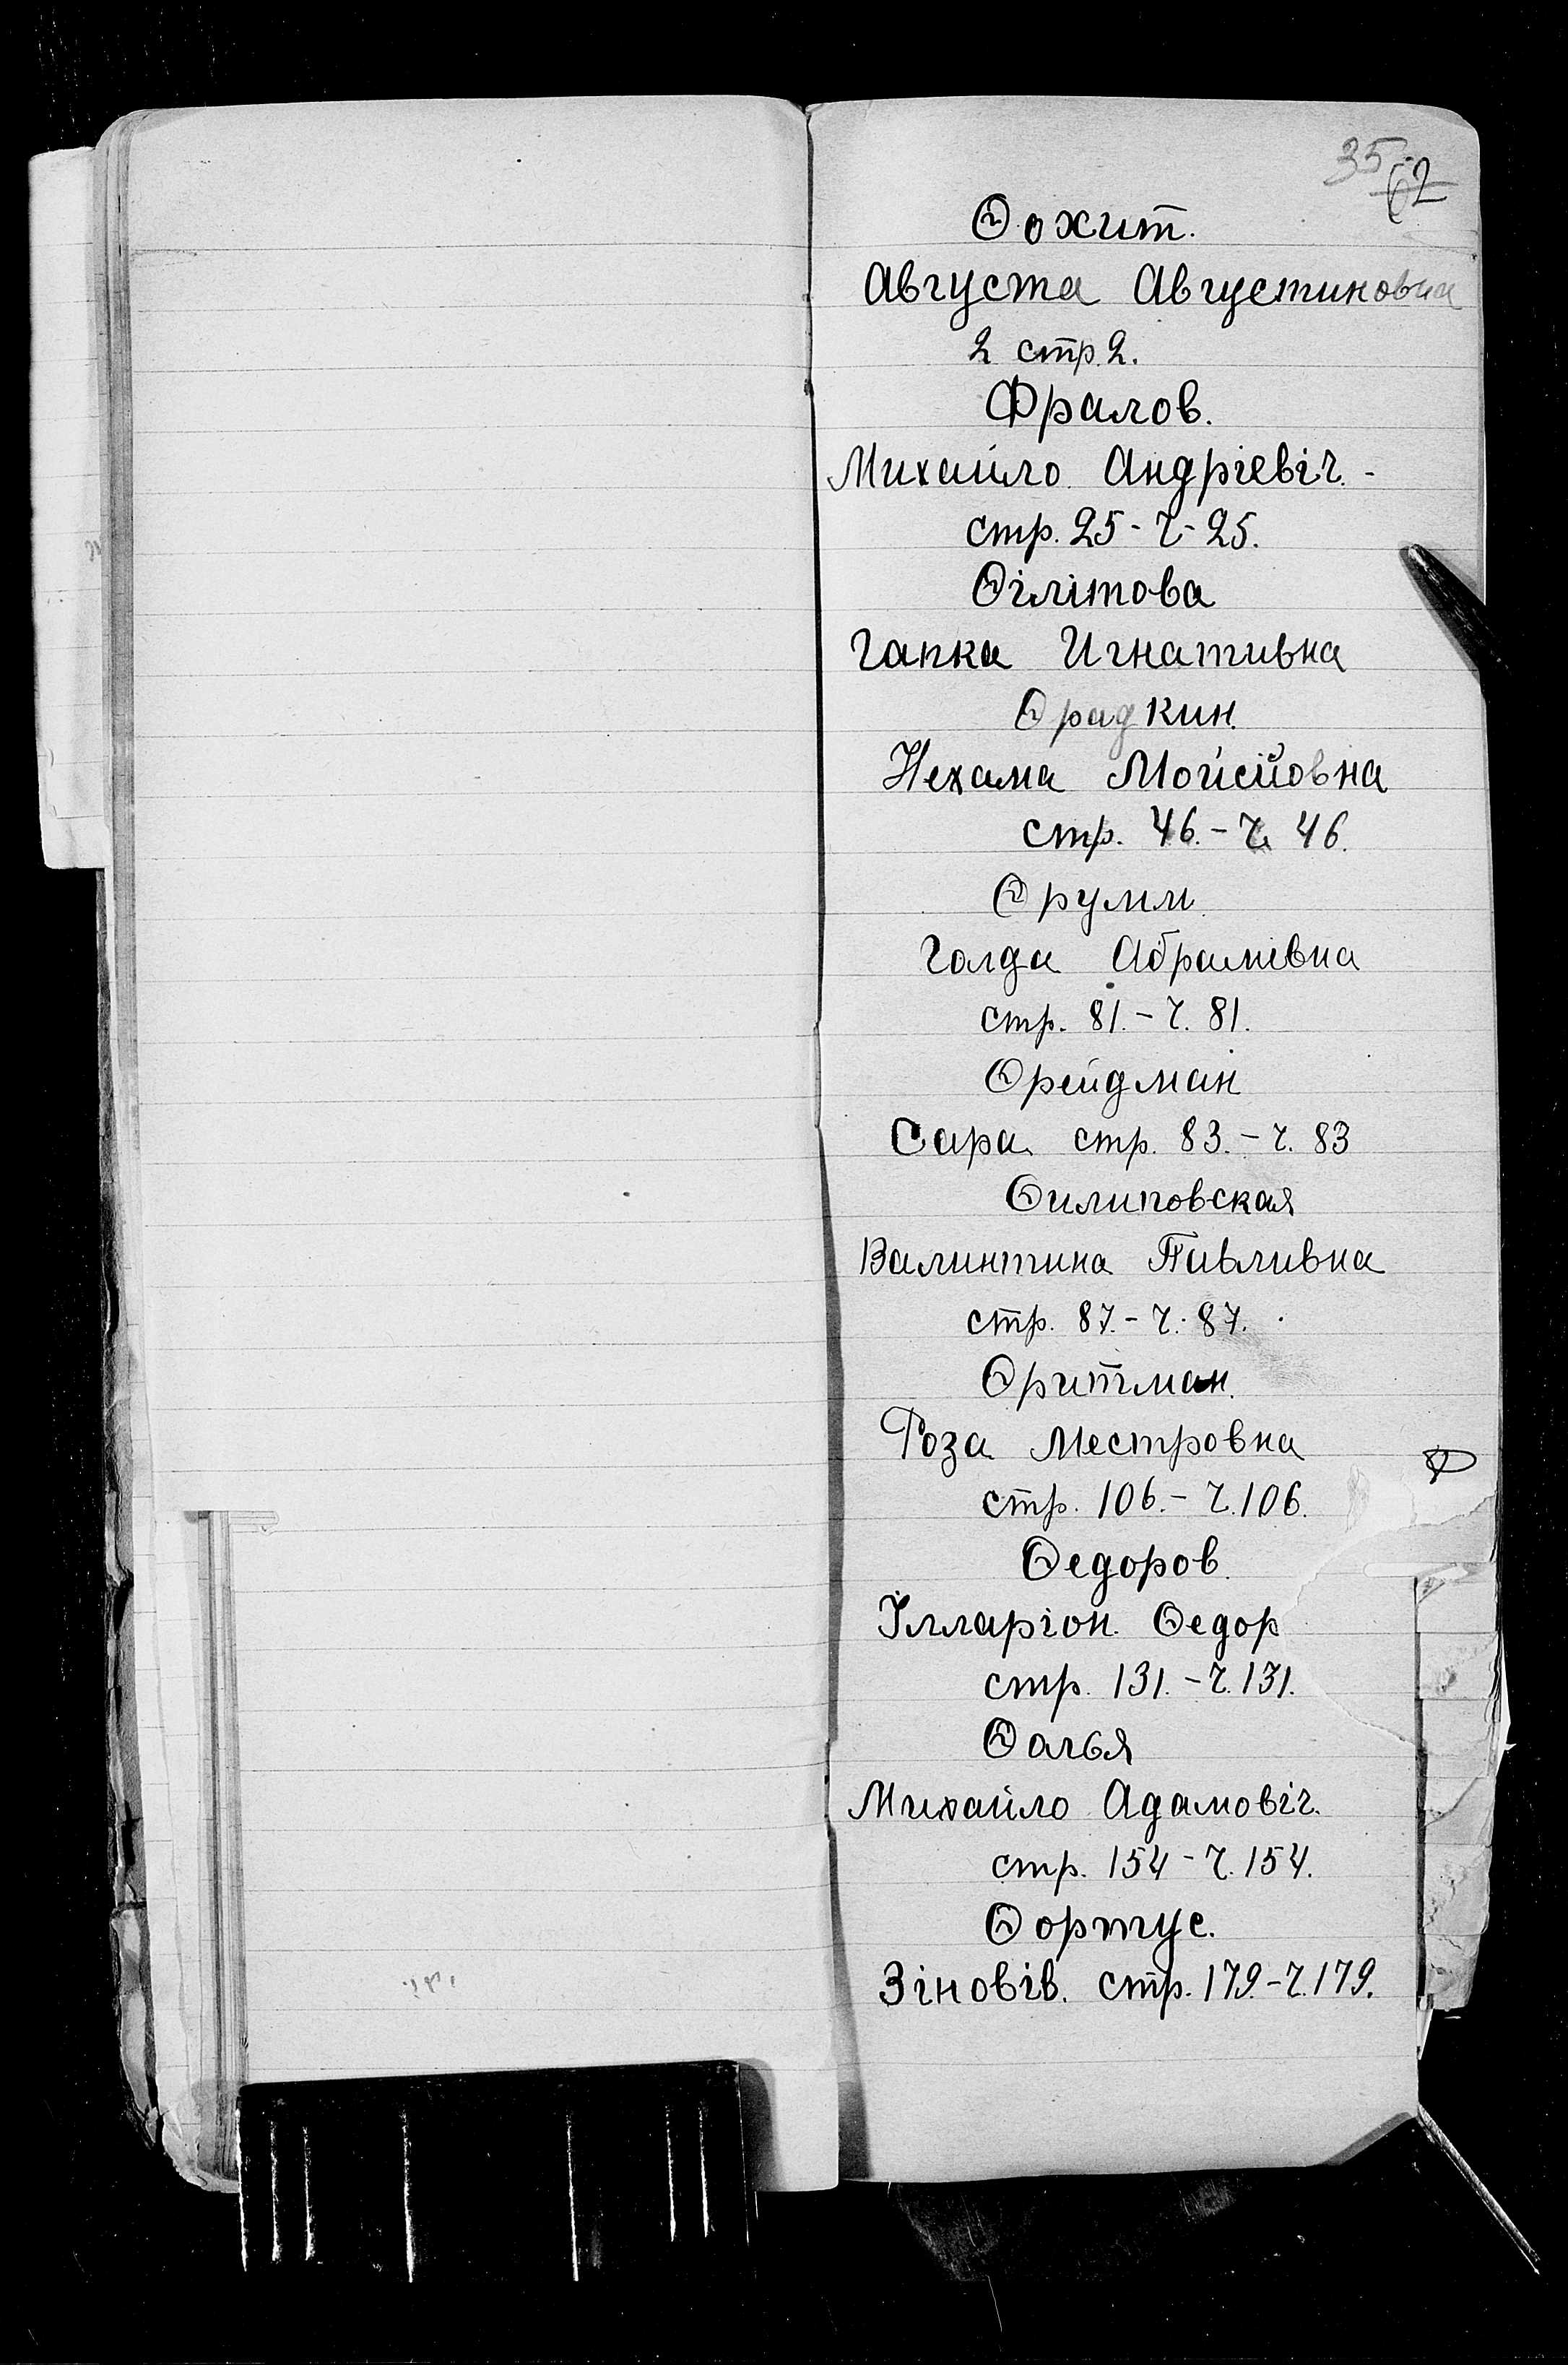 35
62
Ѳохит.
Августа Августиновна
2 стр. 2.
Фралов.
Михайло Андрієвіч. -
стр. 25 - ч - 25.
Ѳілітова
Гапка Игнативна
Ѳрадкин.
Нехама Мойсійовна
стр. 46. - ч. 46.
Ѳрумм.
Голда Абрамівна
стр. 81. - ч. 81.
Ѳрейдман
Сара стр. 83. - ч. 83
Ѳилиповская
Валинтина Павливна
стр. 87. - ч. 87.
Ѳритман.
Роза Местровна
стр. 106. - ч. 106.
Ф
Ѳедоров.
Ілларіон Ѳедор
стр. 131. - ч. 131.
Ѳалья
Михайло Адамовіч.
стр. 154 - ч. 154.
Ѳортус.
Зіновів. стр. 179. - ч. 179.